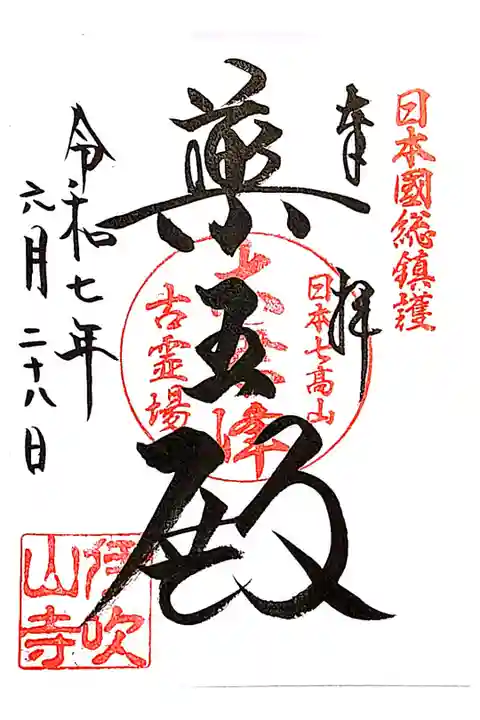 日本國総鎮護
奉拝
日本七高山
薬王殿
古霊場
令和七年
六月二十八日
伊吹
山寺